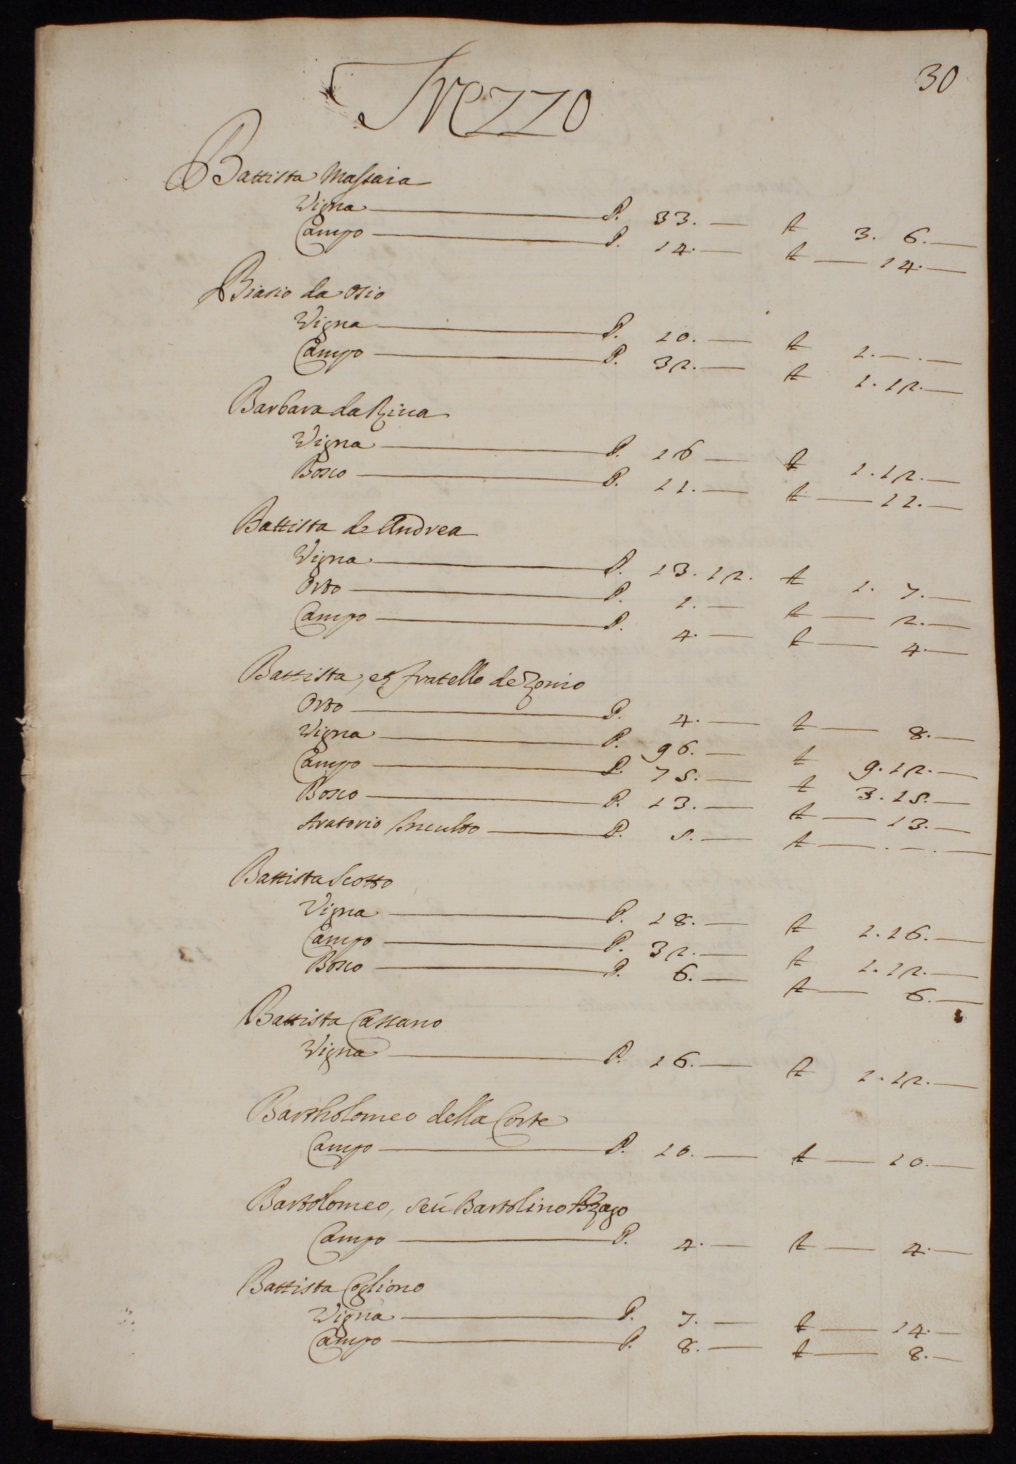 30
Trezzo
Battista Massaia
Vigna P. 33. — £ 3. 6. —
Campo P. 14. — £ — 14. —
Biasio da Osio
Vigna P. 10. — £ 1. — . —
Campo P. 32. — £ 1. 12. —
Barbara da Riua
Vigna P. 16 — £ 1. 12. —
Bosco P. 11. — £ — 11. —
Battista de Andrea
Vigna P. 13. 12. £ 1. 7. —
Orto P. 1. — £ — 2. —
Campo P. 4. — £ — 4. —
Battista, et fratello de Zonio
Orto P. 4. — £ — 8. —
Vigna P. 96. — £ 9. 12. —
Campo P. 75. — £ 3. 15. —
Bosco P. 13. — £ — 13. —
Aratorio Inculto P. 5. — £ — . — . —
Battista Scotto
Vigna P. 18. — £ 1. 16. —
Campo P. 32. — £ 1. 12. —
Bosco P. 6. — £ — 6. —
Battista Cassano
Vigna P. 16. — £ 1. 12. —
Bartholomeo della Corte
Campo P. 10. — £ — 10. —
Bartolomeo, seù Bartolino
Campo P. 4. — £ — 4. —
Battista Coglione
Vigna P. 7. — £ — 14. —
Campo P. 8. — £ — 8. —